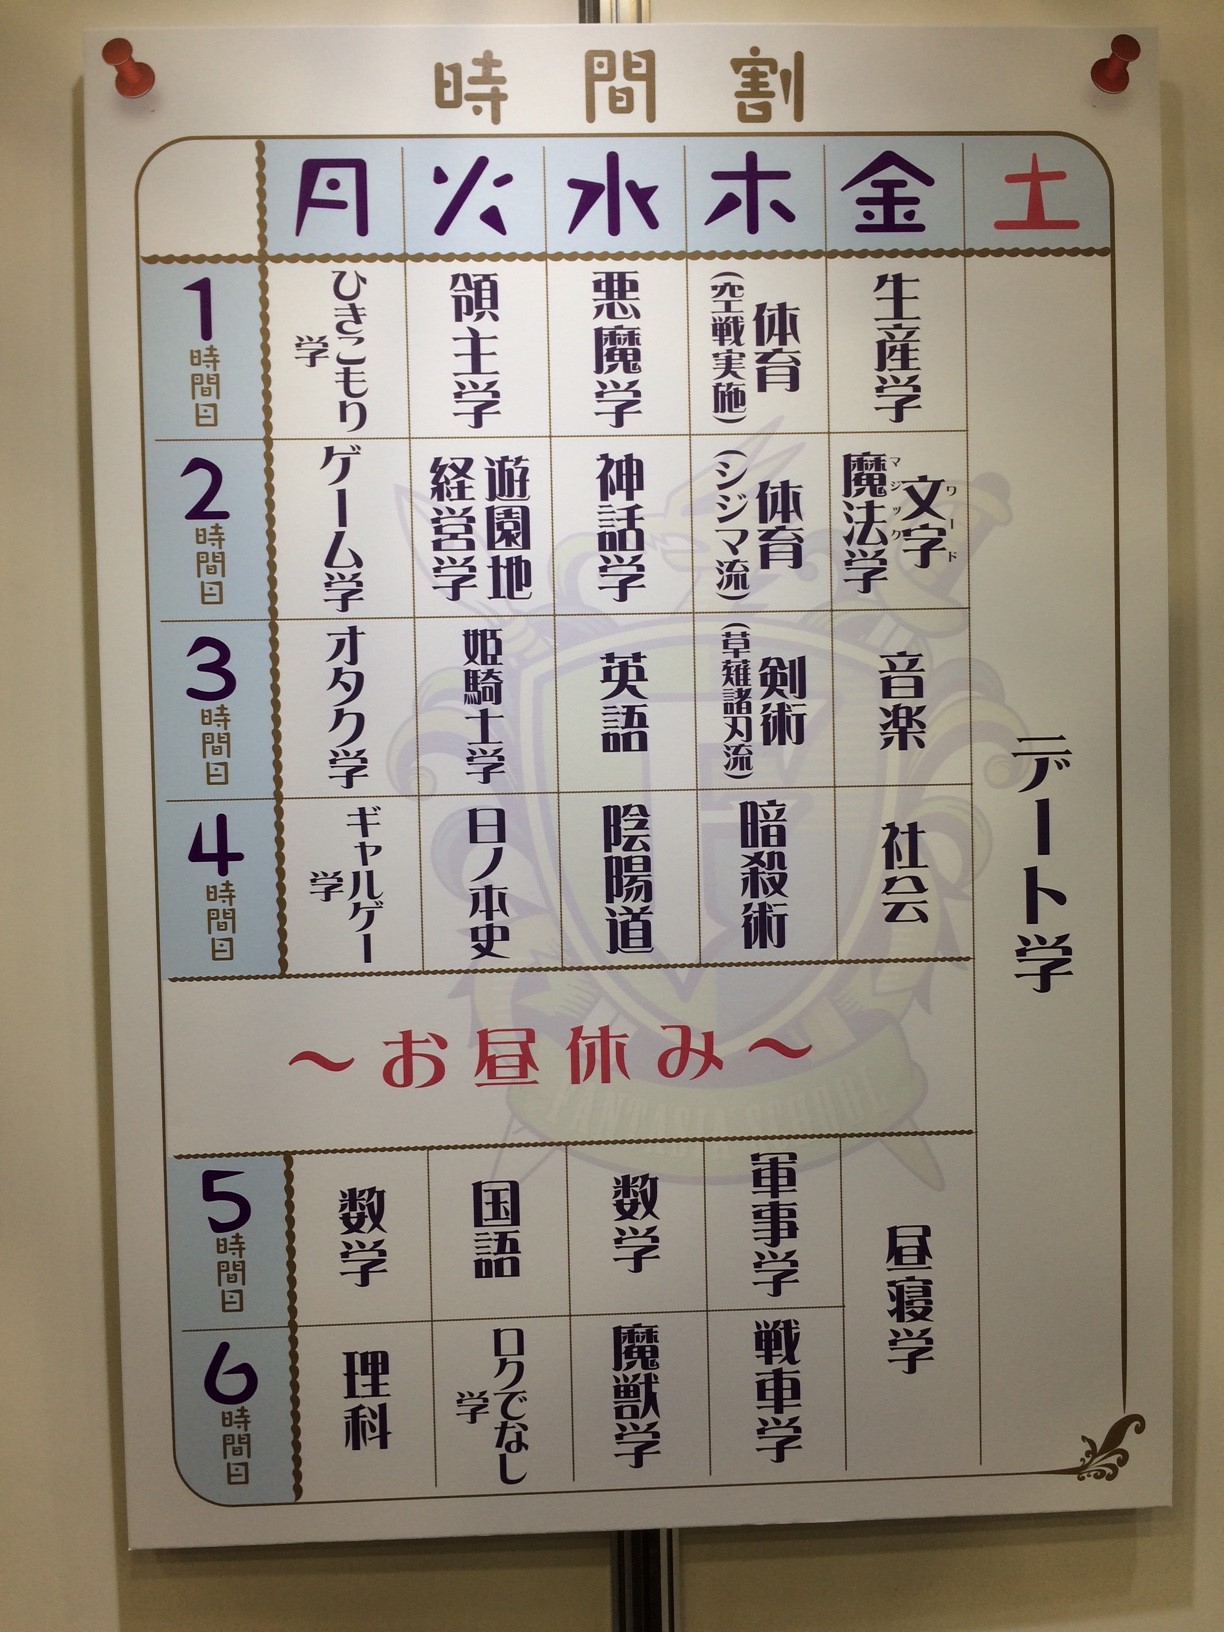 時間割
月 火 水 木 金 土
1時間目
ひきこもり学
領主学
悪魔学
体育(空戦実施)
生産学
2時間目
ゲーム学
遊園地経営学
神話学
体育(シジマ流)
文字魔法学
ワード
マジック
3時間目
オタク学
姫騎士学
英語
剣術(草薙諸刃流)
音楽
4時間目
ギャルゲー学
日ノ本史
陰陽道
暗殺術
社会
デート学
～お昼休み～
5時間目
数学
国語
数学
軍事学
昼寝学
6時間目
理科
ロクでなし学
魔獣学
戦車学
FANTASIA SCHOOL